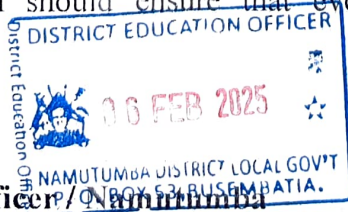 should ensure that
DISTRICT EDUCATION OFFICER
District Education Offi
06 FEB 2025
NAMUTUMBA DISTRICT LOCAL GOV'T
P. O. BOX 53, BUSEMBATIA.
icer / Namutumba